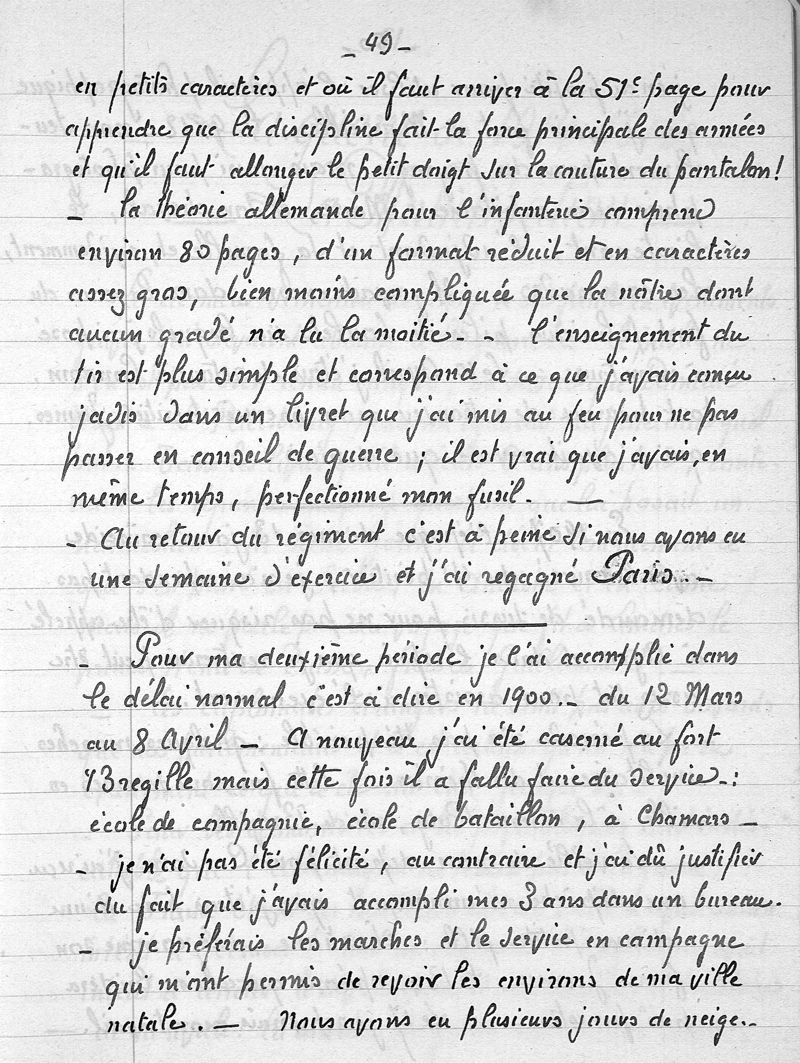 _ 49 _
en petits caractères et où il faut arriver à la 51e page pour
apprendre que la discipline fait la force principale des armées
et qu'il faut allonger le petit doigt sur la couture du pantalon!
_ la théorie allemande pour l'infanterie comprend
environ 80 pages, d'un format réduit et en caractères
assez gras, bien moins compliquée que la nôtre dont
aucun gradé n'a lu la moitié. _ l'enseignement du
tir est plus simple et correspond à ce que j'avais conçu
jadis dans un livret que j'ai mis au feu pour ne pas
passer en conseil de guerre; il est vrai que j'avais, en
même temps, perfectionné mon fusil. _
_ Au retour du régiment c'est à peine si nous avons eu
une semaine d'exercice et j'ai regagné Paris. _
_ Pour ma deuxième période je l'ai accomplie dans
le délai normal c'est à dire en 1900._ du 12 Mars
au 8 Avril _ A nouveau j'ai été caserné au fort
Bregille mais cette fois il a fallu faire du service_:
école de compagnie, école de bataillon, à Chamars _
_ je n'ai pas été félicité, au contraire et j'ai dû justifier
du fait que j'avais accompli mes 3 ans dans un bureau.
_ je préférais les marches et le service en campagne
qui m'ont permis de revoir les environs de ma ville
natale. _ Nous avons eu plusieurs jours de neige._